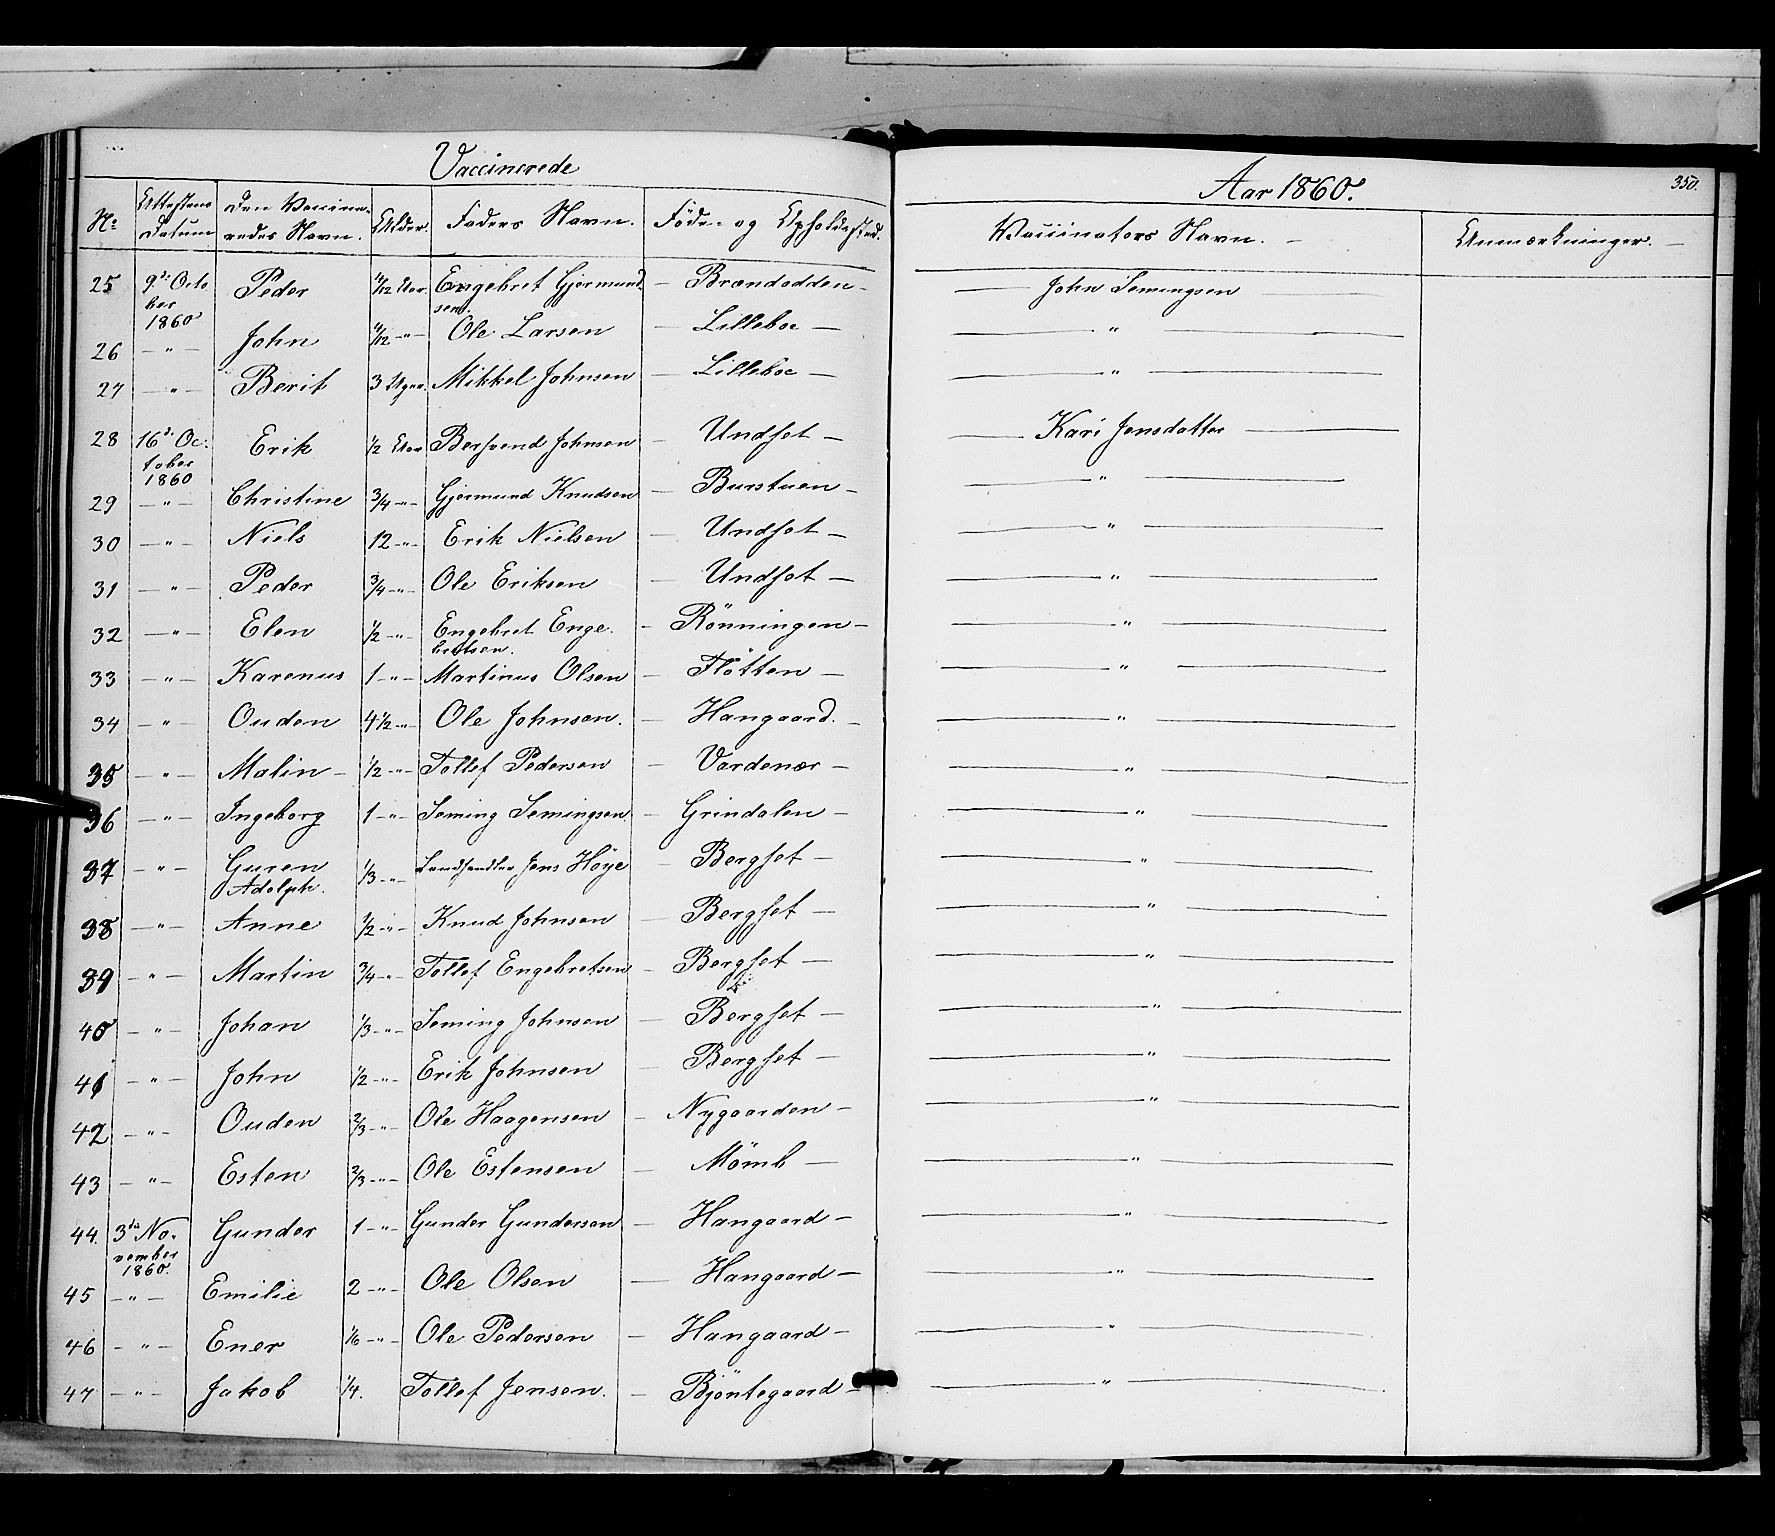 Vaccinerede
Aar 1860.
350.
No Attestens Datum Den Vaccineredes Navn. Alder. Faders Navn. Føde- og Opholdssted. Vaccinators Navn. Anmærkninger.
25 9de Octo Peder Aar Engebret Gjermund- — Brændodden — John Semingsen —
ber sen.
1860
26 — " — John — " — Ole Larsen — Lilleboe — "
27 — " — Berit 3 Ugur. Mikkel Johnsen — Lilleboe — "
28 16de Oc- Erik 1/2 Aar Bersvend Johnsen — Undset — Kari Jensdatter —
tober
1860
29 — " — Christine 3/4 — " — Gjermund Knudsen — Burstuen — "
30 — " — Niels 12 — " — Erik Nielsen — Undset — "
31 — " — Peder 3/4 — " — Ole Eriksen — Undset — "
32 — " — Elen 1/2 — " — Engebret Enge- — Rönningen — "
bretsen.
33 — " — Karenus 1 — " — Martinus Olsen — Flötten — "
34 — " — Ouden 4 1/2 — " — Ole Johnsen. — Hangaard. — "
35 — " — Malin — 1/2 — " — Tollef Pedersen — Vardenær — "
36 — " — Ingeborg 1 — " — Seming Semingsen — Grindalen — "
37 — " — Guren 1/3 — " — Landhandler Jens Höye — Bergset — "
Adolph.
38 — " — Anne 1/2 — " — Knud Johnsen — Bergset — "
39 — " — Martin 3/4 — " — Tollef Engebretsen — Bergset — "
40 — " — Johan 1/3 — " — Seming Johnsen — Bergset — "
41 — " — John 1/2 — " — Erik Johnsen — Bergset — "
42 — " — Ouden 2/3 — " — Ole Haagensen — Nygaarden — "
43 — " — Esten 2/3 — " — Ole Estensen — Mömb — "
44. 3die No- Gunder 1 — " — Gunder Gundersen — Hangaard — "
vember
1860.
45 — " — Emilie 2 — " — Ole Olsen — Hangaard — "
46 — " — Ener 1/6 — " — Ole Pedersen — Hangaard — "
47 — " — Jakob 1/4. Tollef Jensen. — Bjöntegaard — "